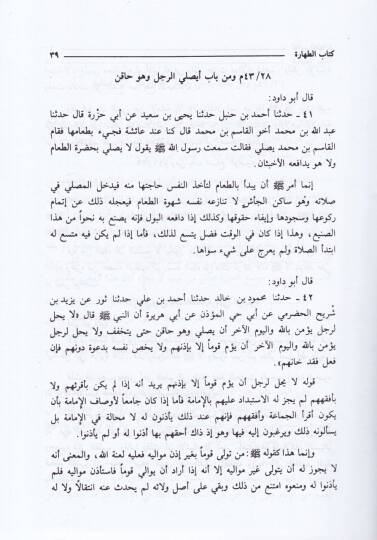 كتاب الطهارة ٣٩
٤٣/٢٨م ومن باب أيصلي الرجل وهو حاقن
قال أبو داود:
٤١ ـ حدثنا أحمد بن حنبل حدثنا يحيى بن سعيد عن أبي حزْرة قال حدثنا
عبد الله بن محمد أخو القاسم بن محمد قال كنا عند عائشة فجيء بطعامها فقام
القاسم بن محمد يصلي فقالت سمعت رسول الله ﷺ يقول لا يصلي بحضرة الطعام
ولا هو يدافعه الأخبثان.
إنما أمر ﷺ أن يبدأ بالطعام لتأخذ النفس حاجتها منه فيدخل المصلي في
صلاته وهو ساكن الجأش لا تنازعه نفسه شهوة الطعام فيعجله ذلك عن إتمام
ركوعها وسجودها وإيفاء حقوقها وكذلك إذا دافعه البول فإنه يصنع به نحواً من هذا
الصنيع، وهذا إذا كان في الوقت فضل يتسع لذلك، فأما إذا لم يكن فيه متسع له
ابتدأ الصلاة ولم يعرج على شيء سواها.
قال أبو داود:
٤٢ ـ حدثنا محمود بن خالد حدثنا أحمد بن علي حدثنا ثور عن يزيد بن
شُريح الحضرمي عن أبي حي المؤذن عن أبي هريرة أن النبي ﷺ قال «لا يحل
لرجل يؤمن بالله واليوم الآخر أن يصلي وهو حاقن حتى يتخفف ولا يحل لرجل
يؤمن بالله واليوم الآخر أن يؤم قوماً إلا بإذنهم ولا يخص نفسه بدعوة دونهم فإن
فعل فقد خانهم».
قوله لا يحل لرجل أن يؤم قوماً إلا بإذنهم يريد أنه إذا لم يكن بأقرئهم ولا
بأفقههم لم يجز له الاستبداد عليهم بالإمامة فأما إذا كان جامعاً لأوصاف الإمامة بأن
يكون أقرأ الجماعة وأفقههم فإنهم عند ذلك يأذنون له لا محالة في الإمامة بل
يسألونه ذلك ويرغبون إليه فيها وهو إذ ذاك أحقهم بها أذنوا له أو لم يأذنوا.
وإنما هذا كقوله ﷺ: من تولى قوماً بغير إذن مواليه فعليه لعنة الله، والمعنى أنه
لا يجوز له أن يتولى غير مواليه إلا أنه إذا أراد أن يوالي قوماً فاستأذن مواليه فلم
يأذنوا له ومنعوه امتنع من ذلك وبقي على أصل ولائه لم يحدث عنه انتقالاً ولا له